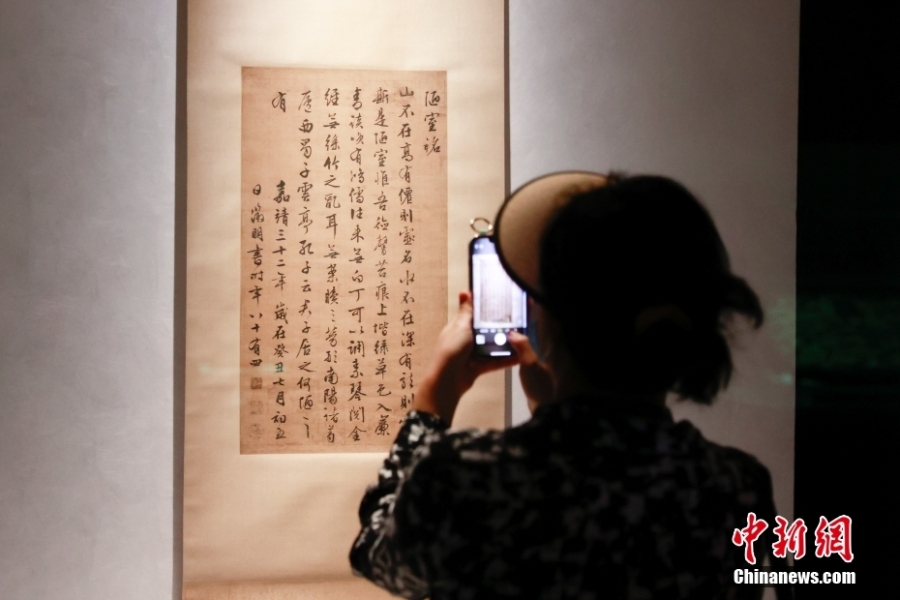 陋室銘
山不在高有僊則靈名水不在深有龍則
斯是陋室惟吾德馨苔痕上堦綠草色入簾
青談笑有鴻儒往來無白丁可以調素琴閱金
經無絲竹之亂耳無案牘之勞形南陽諸葛
廬西蜀子雲亭孔子云夫子居之何陋之
有
嘉靖三十二年歲在癸丑七月初五
日徵明書時年八十有四
中新網
Chinanews.com